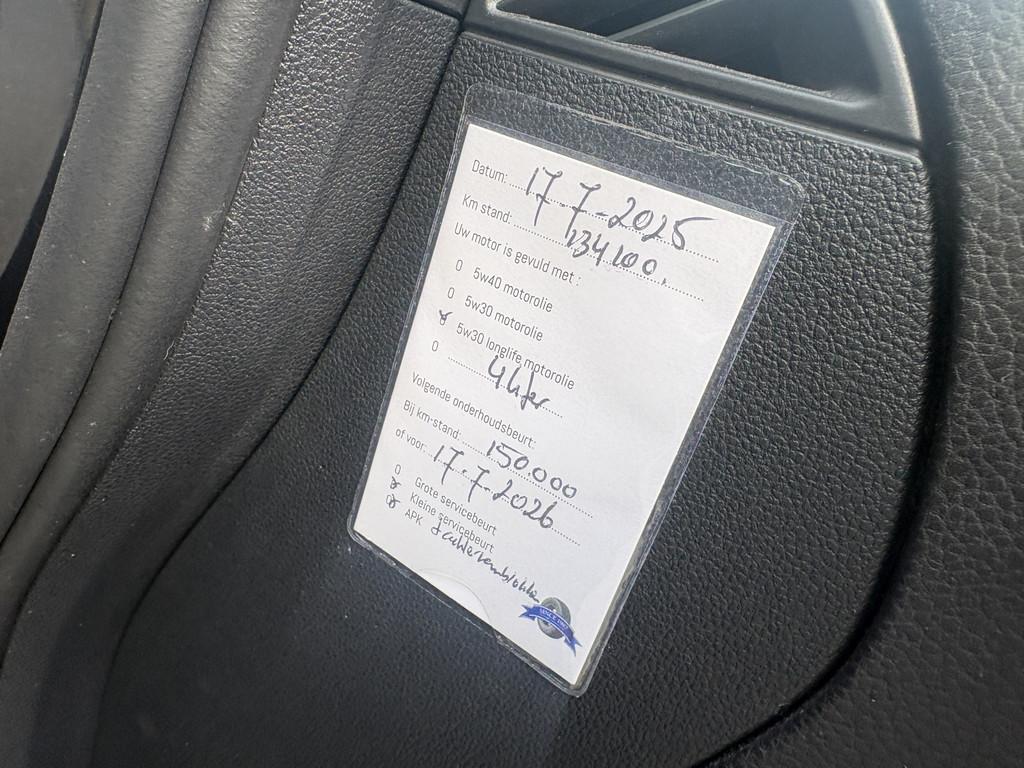 Datum: 17-7-2025
Km stand: 134100.
Uw motor is gevuld met :
0 5w40 motorolie
0 5w30 motorolie
0 5w30 longlife motorolie
0 4 liter
Volgende onderhoudsbeurt:
Bij km-stand: 150.000
of voor: 17-7-2026
0 Grote servicebeurt
0 Kleine servicebeurt
0 APK